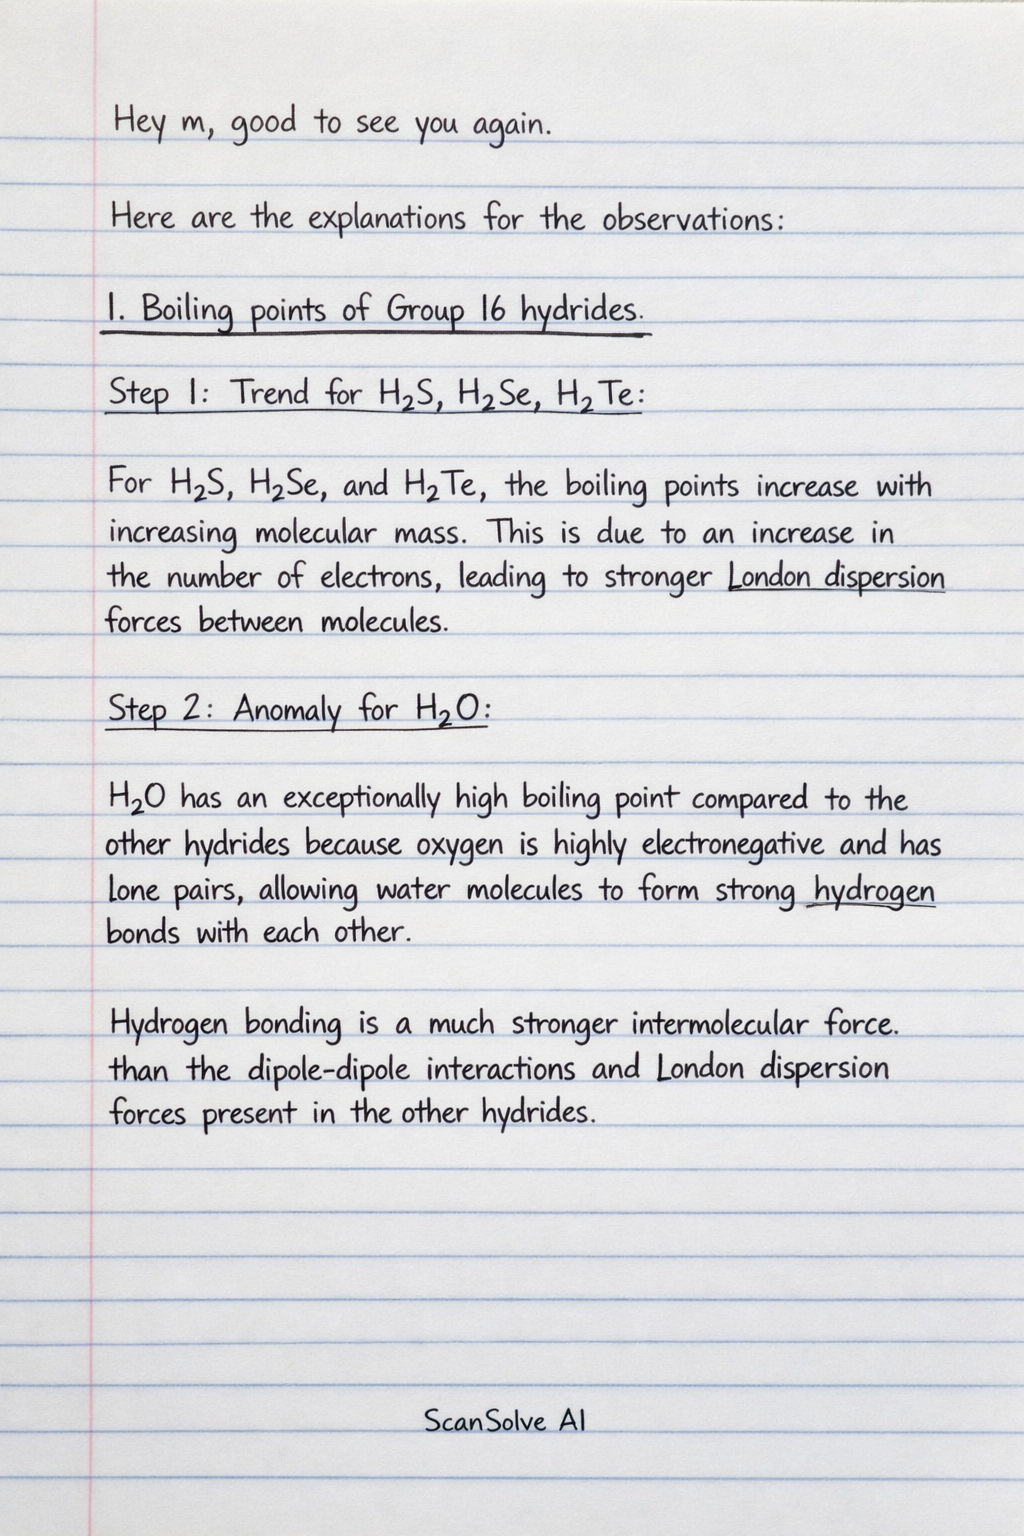 Hey m, good to see you again.
Here are the explanations for the observations:
1. Boiling points of Group 16 hydrides.
Step 1: Trend for H₂S, H₂Se, H₂Te:
For H₂S, H₂Se, and H₂Te, the boiling points increase with
increasing molecular mass. This is due to an increase in
the number of electrons, leading to stronger London dispersion
forces between molecules.
Step 2: Anomaly for H₂O:
H₂O has an exceptionally high boiling point compared to the
other hydrides because oxygen is highly electronegative and has
lone pairs, allowing water molecules to form strong hydrogen
bonds with each other.
Hydrogen bonding is a much stronger intermolecular force.
than the dipole-dipole interactions and London dispersion
forces present in the other hydrides.
ScanSolve AI